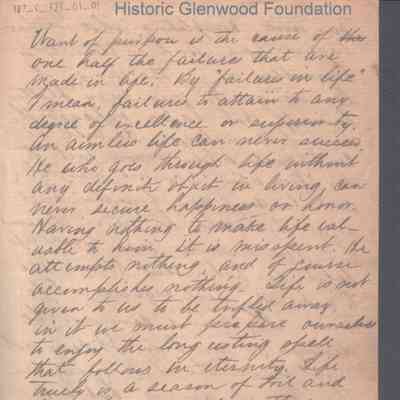 Historic Glenwood Foundation
Want of purpose is the cause of the
one half the failures that are
made in life. By "failures in life"
I mean, failures to attain to any
degree of excellence or superiority.
An aimless life can never succeed.
He who goes through life without
any definite object in living, can
never secure happiness or honor.
Having nothing to make life val-
uable to him it is misspent. He
attempts nothing, and of course
accomplishes nothing. Life is not
given to us to be trifled away
in it we must prepare ourselves
to enjoy the long resting spell
that follows in eternity. Life
truly is a season of toil and